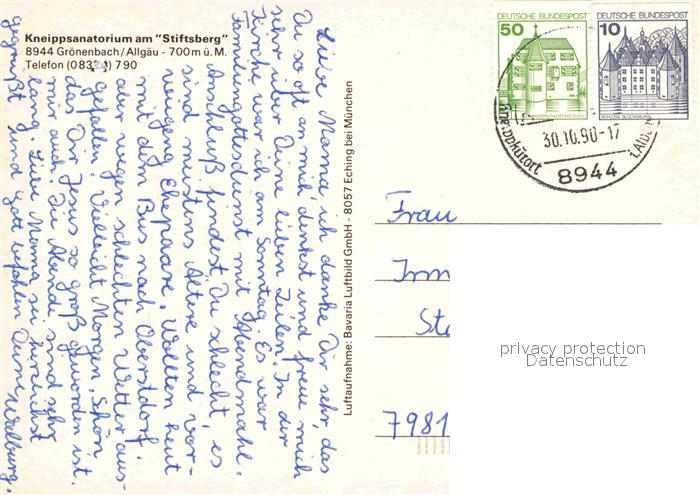 Kneippsanatorium am "Stiftsberg"
8944 Grönenbach/Allgäu - 700 m ü. M.
Telefon (0 83 34) 7 90
Liebe Mama, ich danke Dir sehr, das
Du so oft an mich denkst und freue mich
sehr über Deine lieben Zeilen. In der
Kirche war ich am Sonntag. Es war
Familiengottesdienst mit Abendmahl.
Anschluß findest Du schlecht, es
sind meistens Ältere und vor-
wiegend Ehepaare. Wollten heut
mit dem Bus nach Oberstdorf,
aber wegen schlechten Wetter aus-
gefallen. Vielleicht Morgen. Schön
das Dir Jesus so groß geworden ist.
mir auch. Die Abende sind sehr
lang. Liebe Mama sei herzlichst
gegrüßt und Gott befohlen Deine Walburg.
Luftaufnahme: Bavaria Luftbild GmbH - 8057 Eching bei München
DEUTSCHE BUNDESPOST
50
DEUTSCHE BUNDESPOST
10
SCHLOSS GLÜCKSBURG
30.10.90-17
8944
Kneippkurort
Frau
Irm
Ste
7981
privacy protection
Datenschutz